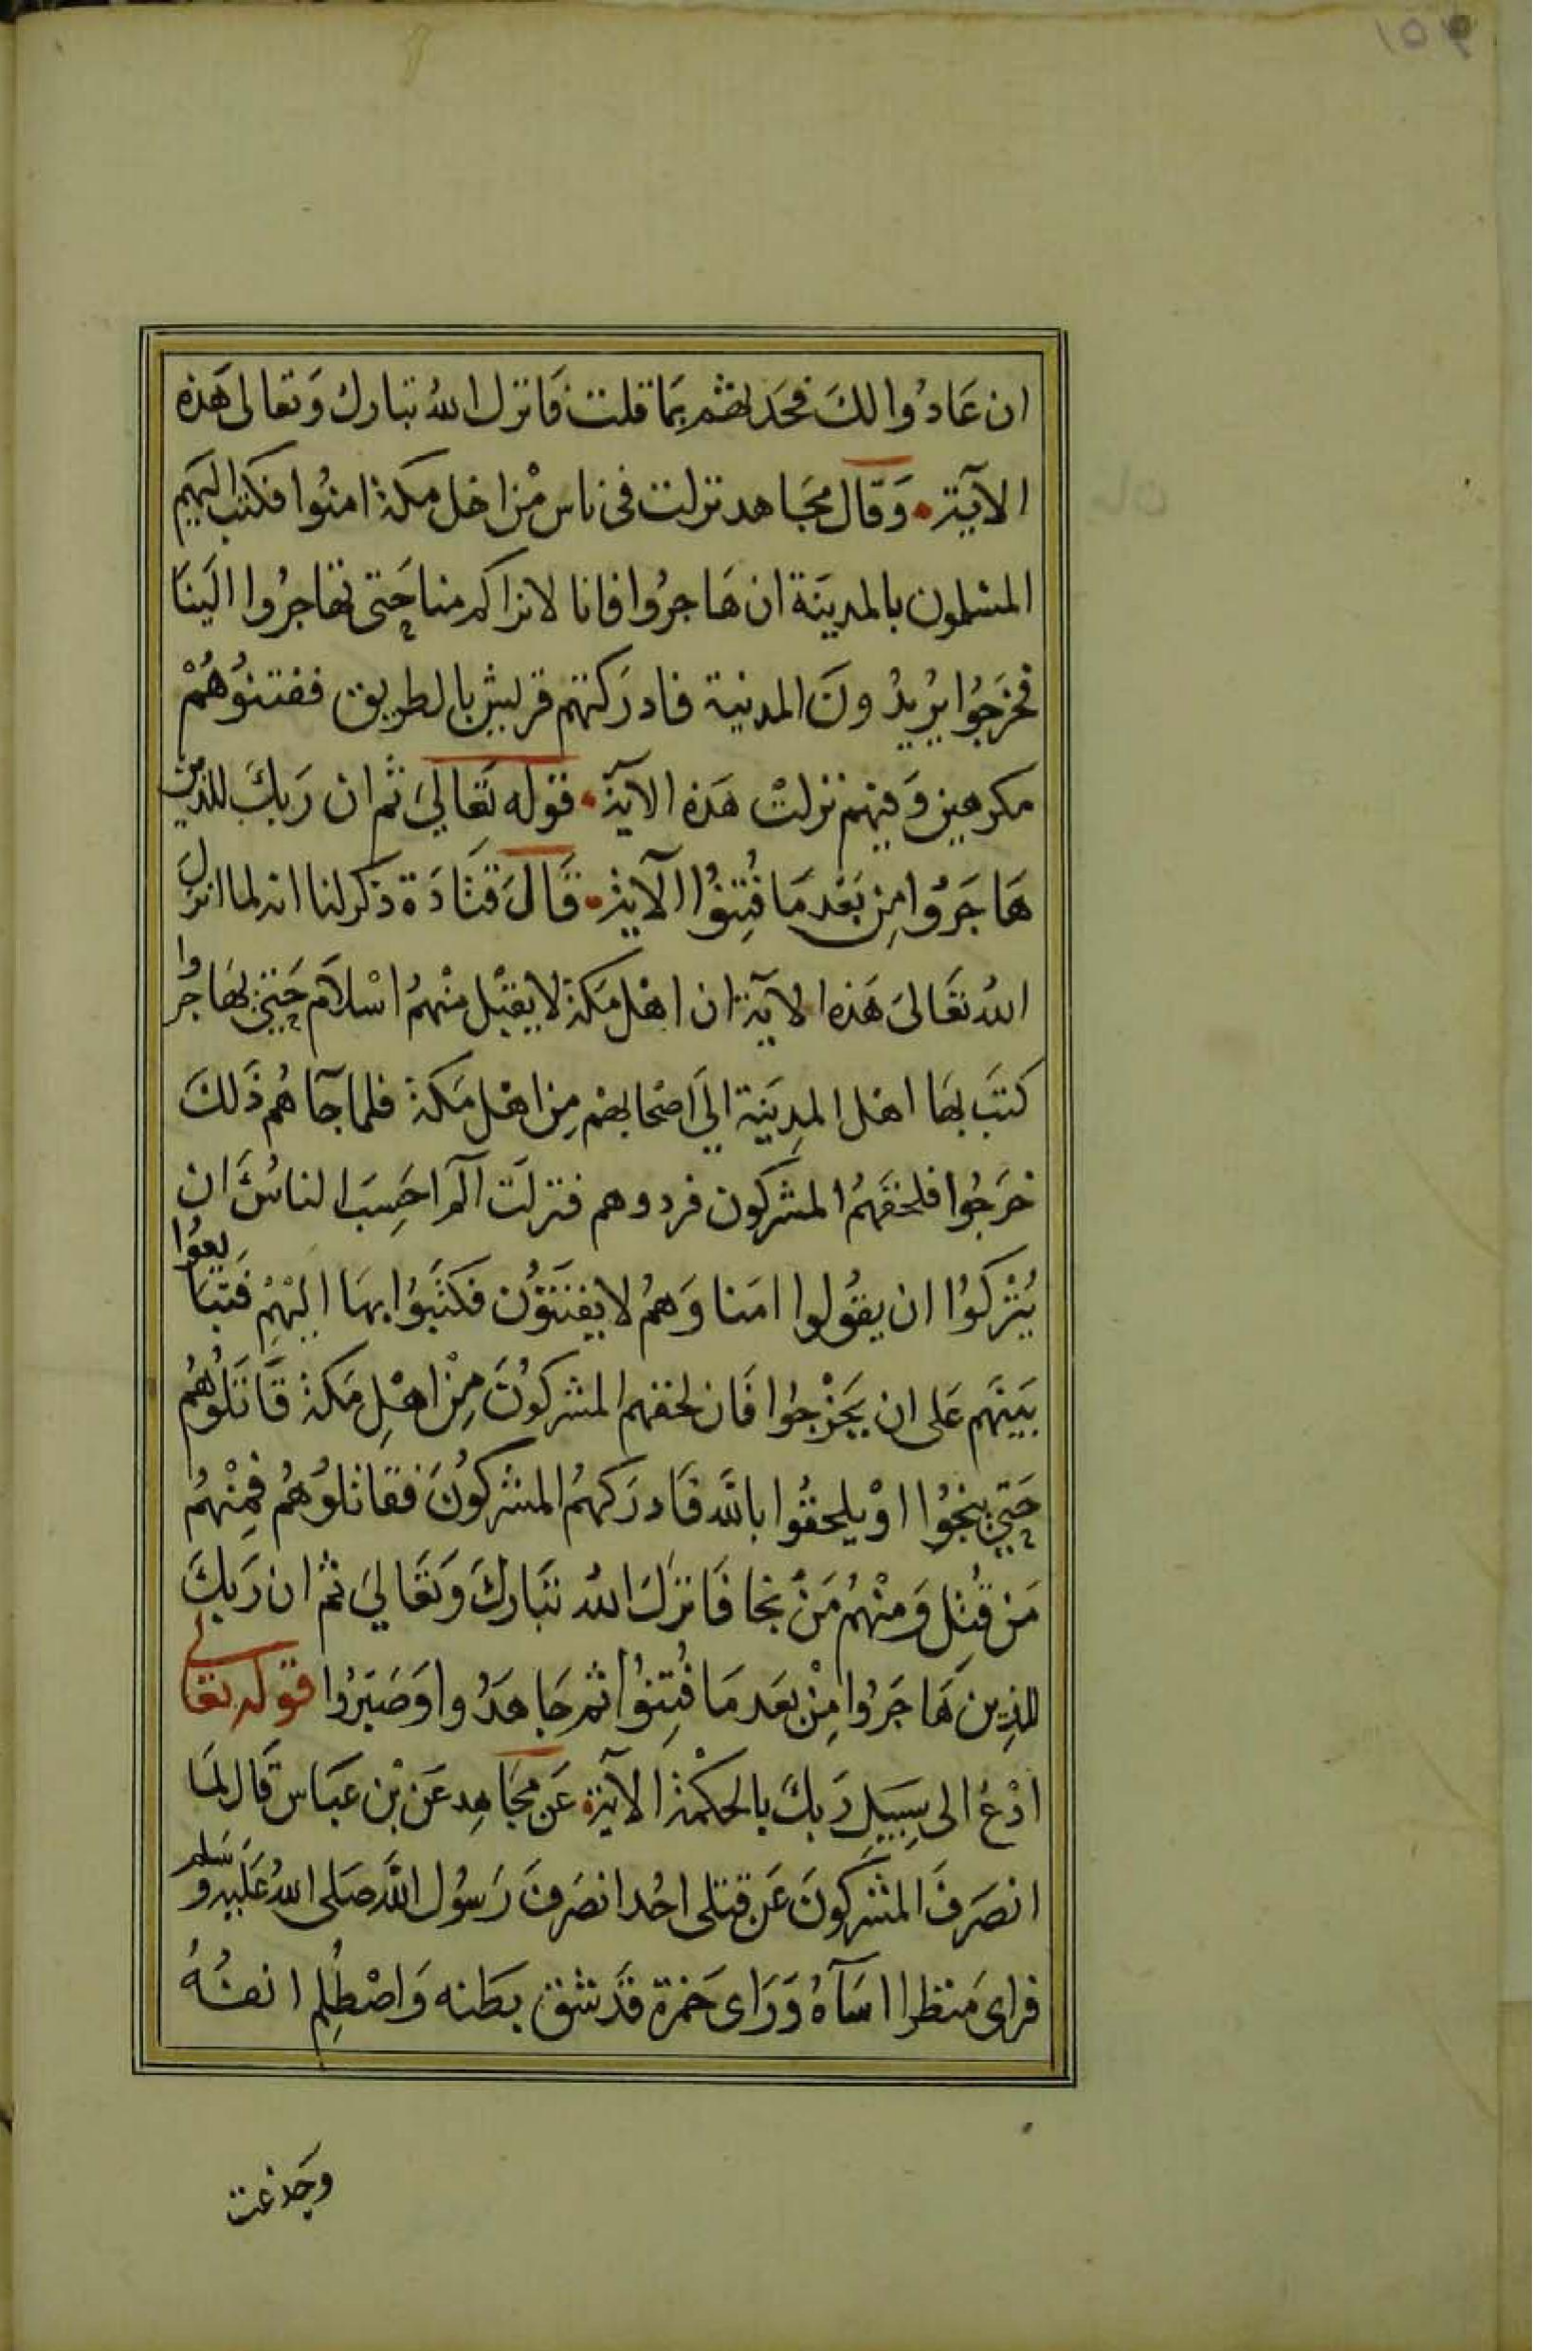 ان عَادُوا لكَ فعَد لهُم بمَا قلت فَانزل اللهُ تبارك وَتعالى هَذه
الآيَة • وَقَال مجَاهد نزلت فى ناس مْن اهل مكة امنُوا فكتب اليهم
المسْلمون بالمدينَة ان هَاجرُوا فانا لا نراكم منا حَتى تهاجرُوا الَينَا
فخرَجُوا يُريدُونَ المدينة فادرَكتهم قريش بالطريق ففتنوُهُمْ
مكرهين وَفيهم نزلتْ هَذه الآية • قوله تَعَالىَ ثم ان رَبكَ للذين
هَاجَرُوا مِن بَعْد مَا فُتِنُوا الآية • قَالَ قتَادَة ذكر لنا انه لما انزلَ
اللهُ تعَالىَ هَذه الآية ان اهْل مَكة لا يقبْل منْهمُ اسْلام حَتىَ يهَاجرُوا
كتَب بهَا اهْل المدِينَة الىَ اصْحابهم مِن اهْل مَكة فلما جآهُم ذَلكَ
خرَجُوا فلحقَهمُ المشركون فردوهم فنزلت آلم احَسِبَ الناسُ ان
يُتْركوُا ان يقوُلوا امَنا وَهمُ لا يفتَنوُن فكتبَوُا بهَا اليْهِمْ فَتبَايعوُا
بَينَهم عَلى ان يَخْرجُوا فَان لحقهم المشركوُنَ مِنْ اهْلِ مَكة قَاتَلُوهُمُ
حَتىَ ينجُوا اوْ يلحقوُا بالله فَادرَكهمُ المشركوُنَ فقاتلوُهُم فمِنْهُمُ
مَن قتُل وَمنْهُم مَنْ نجا فَانزلَ اللهُ تبَاركَ وَتعَالىَ ثم ان رَبكَ
للذِين هَاجَرُوا مِنْ بعَد مَا فُتِنُوا ثم جَاهَدُوا وَصَبَرُوا قوله تعَالى
ادْعُ الى سَبِيلِ رَبكَ بالحكْمة الآية • عَن مجَاهِد عَن بْن عبَاس قَال لمَا
انصَرفَ المشركوُنَ عَن قتلى احُد انصَرفَ رَسوُل الله صَلى اللهُ عَليه وَسَلم
فراى مَنظرا اسَآهُ وَرَاى حَمزة قَد شق بطَنه وَاصْطُلِم انفهُ
وجدعت